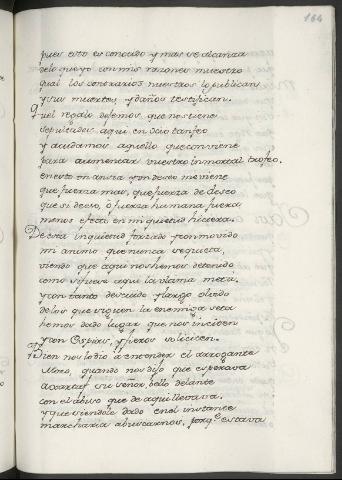 164
pues esto es conocido y mas se alcanza
delo que yo con mis razones muestro
qual los contrarios nuestros lo publican
y sus muertes, y daños testifican.
Quel regalo dexemos, que nos tiene
sepultados aqui en ocio tan feo
y acudamos aquello que conviene
para aumentar vuestro inmortal trofeo.
en esto en ansia y con deseo me viene
que fuerza mas, que fuerza de deseo
que si deseo, o fuerza humana fuera
menos efeto en mi quietud hiziera.
De esta inquietud forzado y conmovido
mi animo que nunca se quieta,
viendo que aqui nos hemos detenido
como si fuese aqui la ultima meta.
y con tanto descuido y largo olvido
de los que siguen la enemiga seta
hemos dado lugar que nos inciten
y con Espias, y fieros soliciten.
Bien nos lo dio à entender el arrogante
Moro, quando nos dijo que esperava
a su señor, bello delante
con el aviso que de aqui llevava.
y que siendole dado en el instante
marcharia abuscarnos, porq.e estava